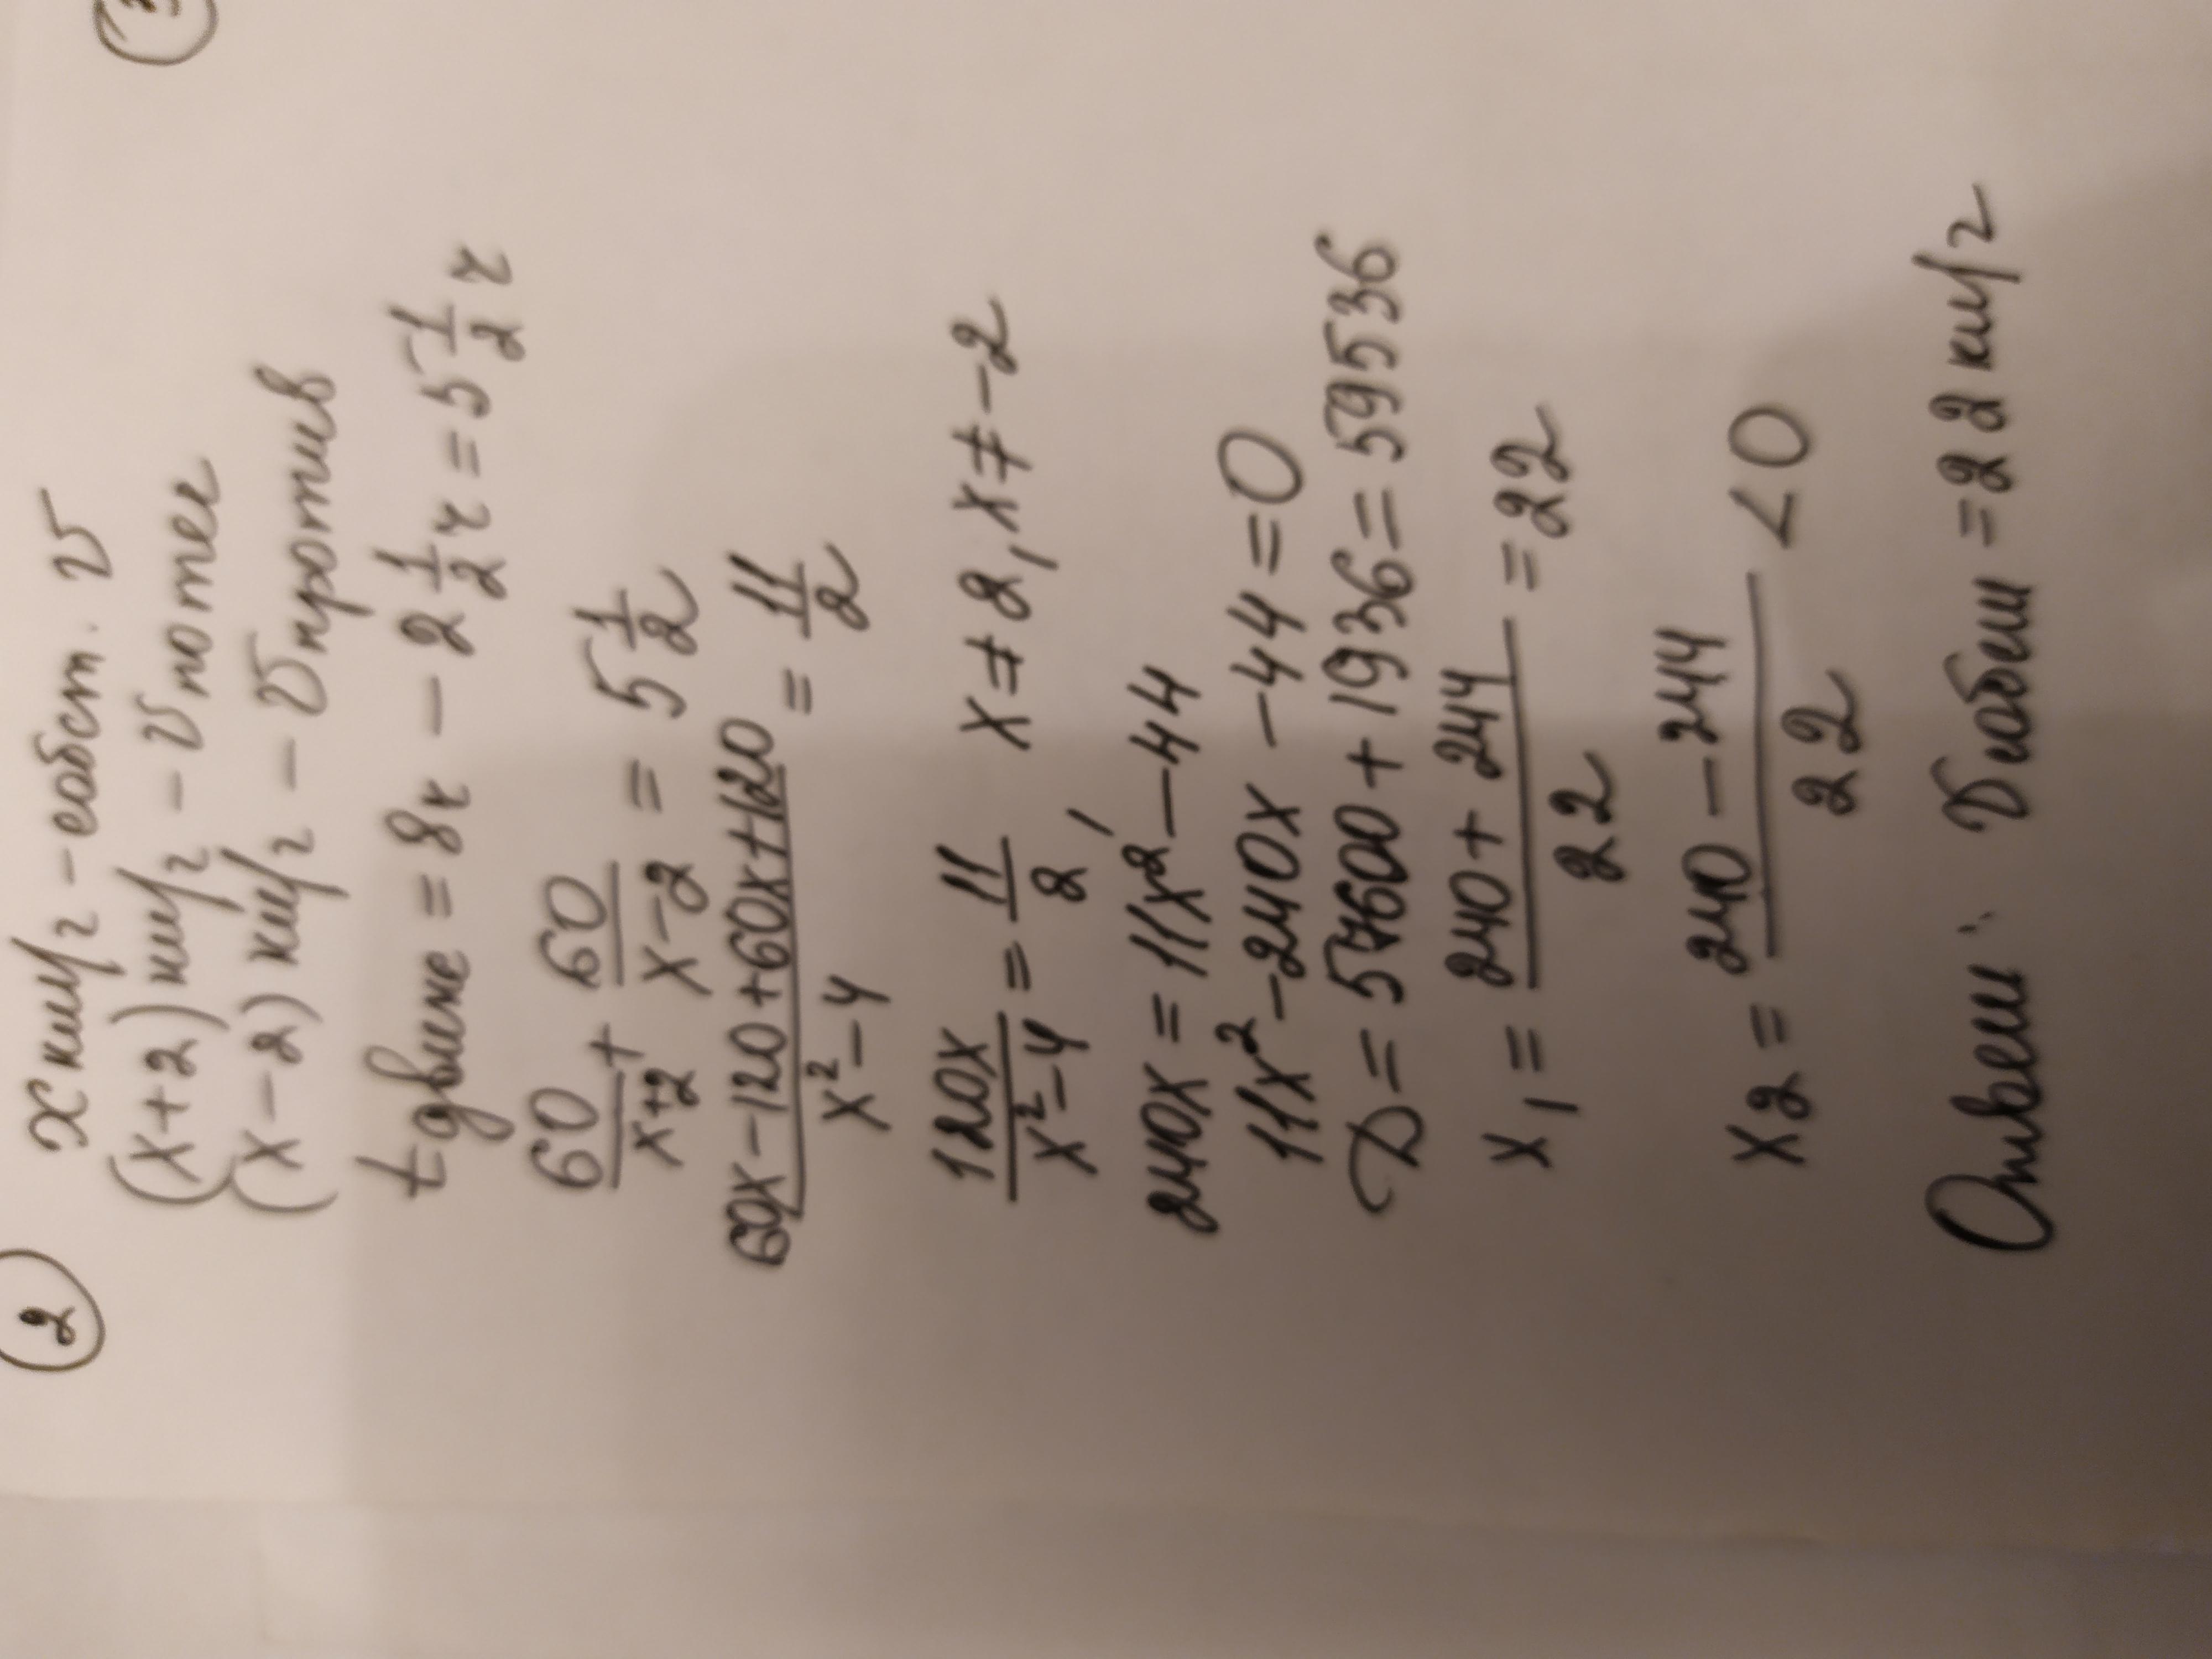 2
x км/ч - собст. v
(x+2) км/ч - v по теч
(x-2) км/ч - v против
t движ = 8ч - 2 1/2 ч = 5 1/2 ч
60/(x+2) + 60/(x-2) = 5 1/2
(60x-120+60x+120)/(x²-4) = 11/2
120x/(x²-4) = 11/2, x≠2, x≠-2
240x = 11x²-44
11x²-240x-44=0
D=57600+1936=59536
x₁ = (240+244)/22 = 22
x₂ = (240-244)/22 < 0
Ответ: v собст = 22 км/ч